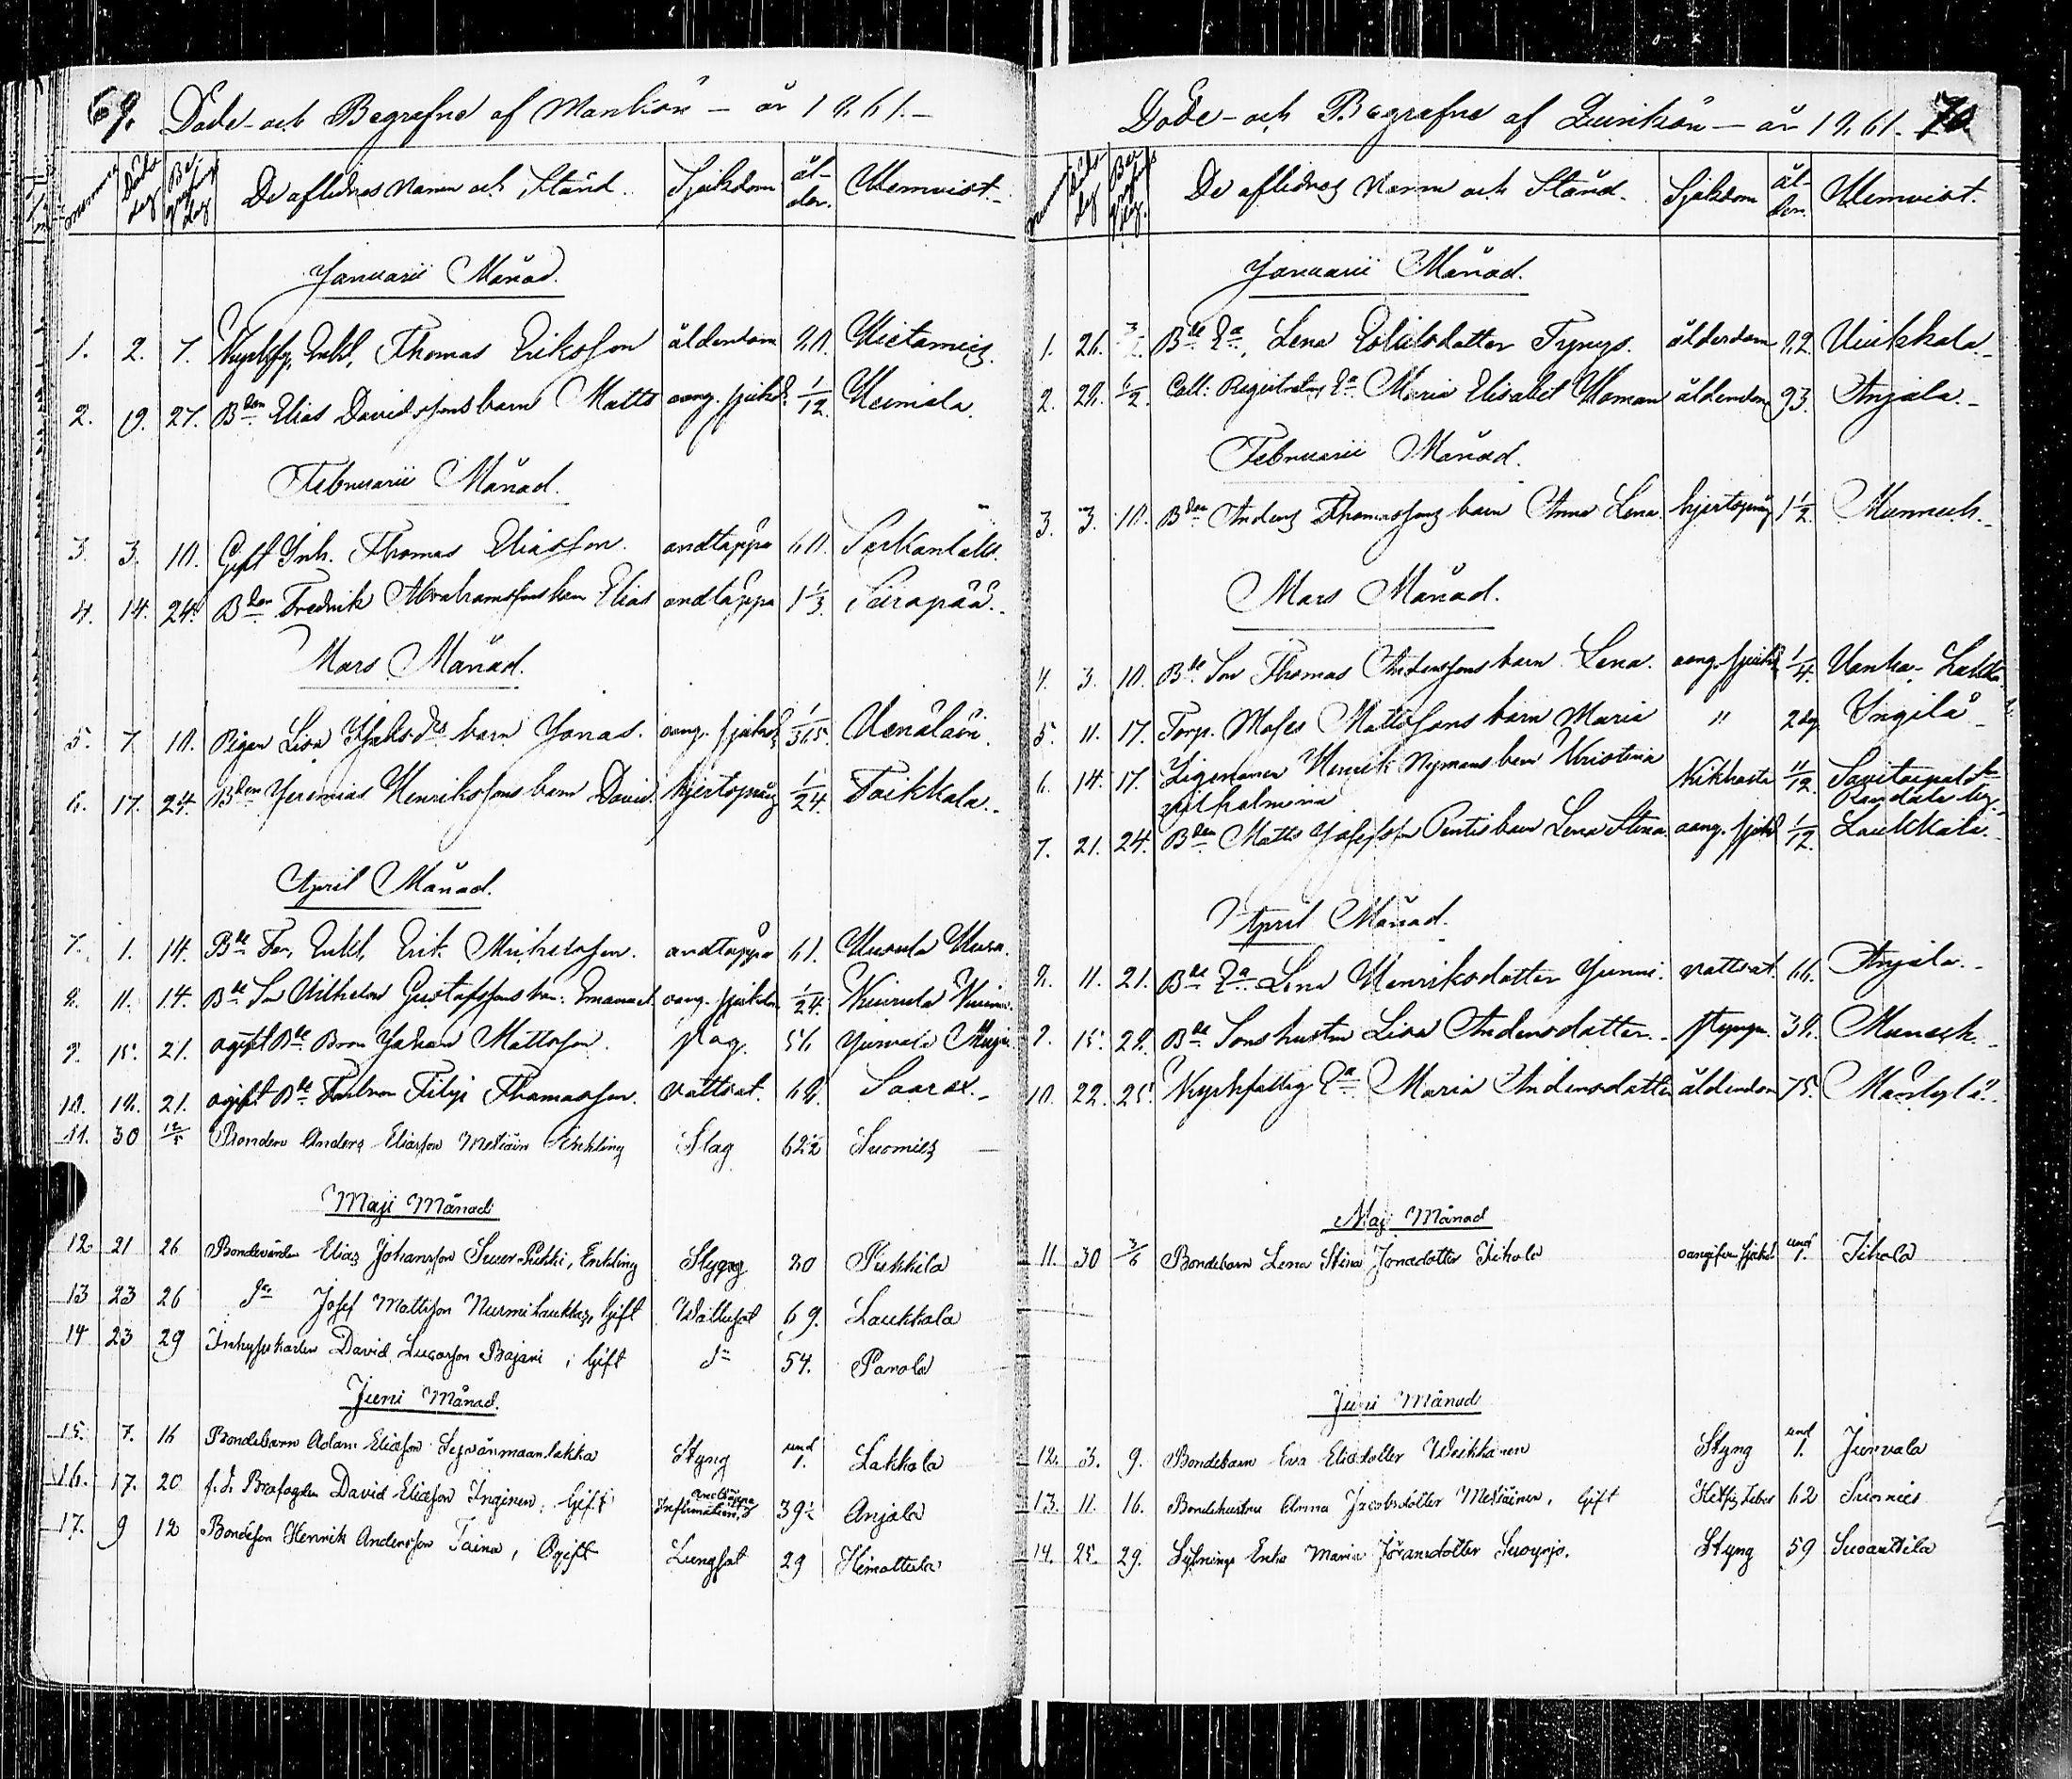 69. Döde och Begrafne af Mankön – år 1861. –
nummer Döds dag Begrafnings dag De aflidnas Namn och Stånd. Sjukdom ålder. Hemvist. –
Januarii Månad.
1. 2. 7. Enkl, Thomas Eriksson ålderdom 80.
2. 9. 27. Bden Elias Davidssons barn Matts oang. sjukd. 1/12 Heimala.
Februarii Månad.
3. 3. 10. Gift Inh. Thomas Eliasson. andtäppa 60.
4. 14. 24. Bden Fredrik Abrahamssons barn Elias andtäppa 1 1/3 Siirapää. –
Mars Månad.
5. 7 10. Pigan Lisa barn Jonas. oang. sjukd. 1/365 Venäläin.
6. 17. 24. Bden Jeremias Henrikssons barn David. hjertsprång 1/24. Taikkala. –
April Månad.
7. 1. 14. Bde Far, Enkl, Erik Michelsson. andtäppa 61.
8. 11. 14. Bde Son Wilhelm Gustafssons barn: Emanuel oang. sjukdom 1/24.
9. 15. 21. ogift Bde Bror Johan Mattsson. slag. 56
10. 18. 21. ogift Bde Farbror Filip Thomasson. vattsot. 68. Saarax. –
11. 30 12/5 Bonden Anders Eliasson Enkling Slag 62 1/2 Suomies
Maji Månad
12 21 26 Elias Johansson Suur Pukki, Enkling Styng 80 Pukkila
13 23 26 Do Josef Mattsson Nurmilaukkas, Gift Wattusot 69. Laukkala
14 23 29 Inhyseskarlen David Lucasson Bajari, Gift Do 54. Parola
Juni Månad.
15. 7. 16 Bondebarn Adam Eliasson Styng und 1. Lakkala
16. 17. 20 f.d. David Eliasson Inginen, Gift andtäppa 39 1/2 Anjala
17. 9 12 Bondeson Henrik Andersson Taina, Ogift Lungsot 29 Himottula
Döde – och Begrafne af Qvinkön – år 1861. 70.
nummer Döds dag Begrafnings dag. De aflidnas Namn och Stånd. Sjukdom ålder. Hemvist.
Januarii Månad.
1. 26. 3/2. Bde Ea, Lena ålderdom 82 Uikkala –
2. 28. 6/2. Coll: Registrators Ea Maria Elisabet Homan ålderdom 93. Anjala. –
Februarii Månad.
3. 3. 10. Bden Anders Thomassons barn Anna Lena. hjertsprång 1 1/2
Mars Månad.
4. 3. 10. Bde Son Thomas Anderssons barn Lena. oang. sjukd. 1/4
5. 11. 17. Torp. Moses Mattssons barn Maria " 2 dg Ingilä –
6. 14. 17. Zigenaren Henrik Nymans barn Kristina Kikhosta 11/12
Vilhelmina
7. 21. 24. Bden Matts Josefsson Pentis barn Lena Stina oang. sjukd 1/12 Laukkala. –
April Månad.
8. 11. 21. Bde Ea Lena Henriksdotter vattsot. 66. Anjala. –
9. 15. 28. Bde Sonhustru Lisa Andersdotter. – styng. 38.
10. 22. 25. Kyrkfattig Ea Maria Andersdotter ålderdom 75. Mäntylä.
Maj Månad
11. 30 2/6 Bondebarn Lena Stina Jonædotter Tihola oangifven sjukd und 1. Tihola
Juni Månad
12. 3. 9. Bondebarn Eva Eliædotter Weikkanen Styng und 1. Junvala
13. 11. 16. Bondehustru Anna Jacobsdotter, Gift 62 Suomies
14. 25. 29. Enka Maria Jöransdotter Suoyrjö. Styng 59 Suoanttila